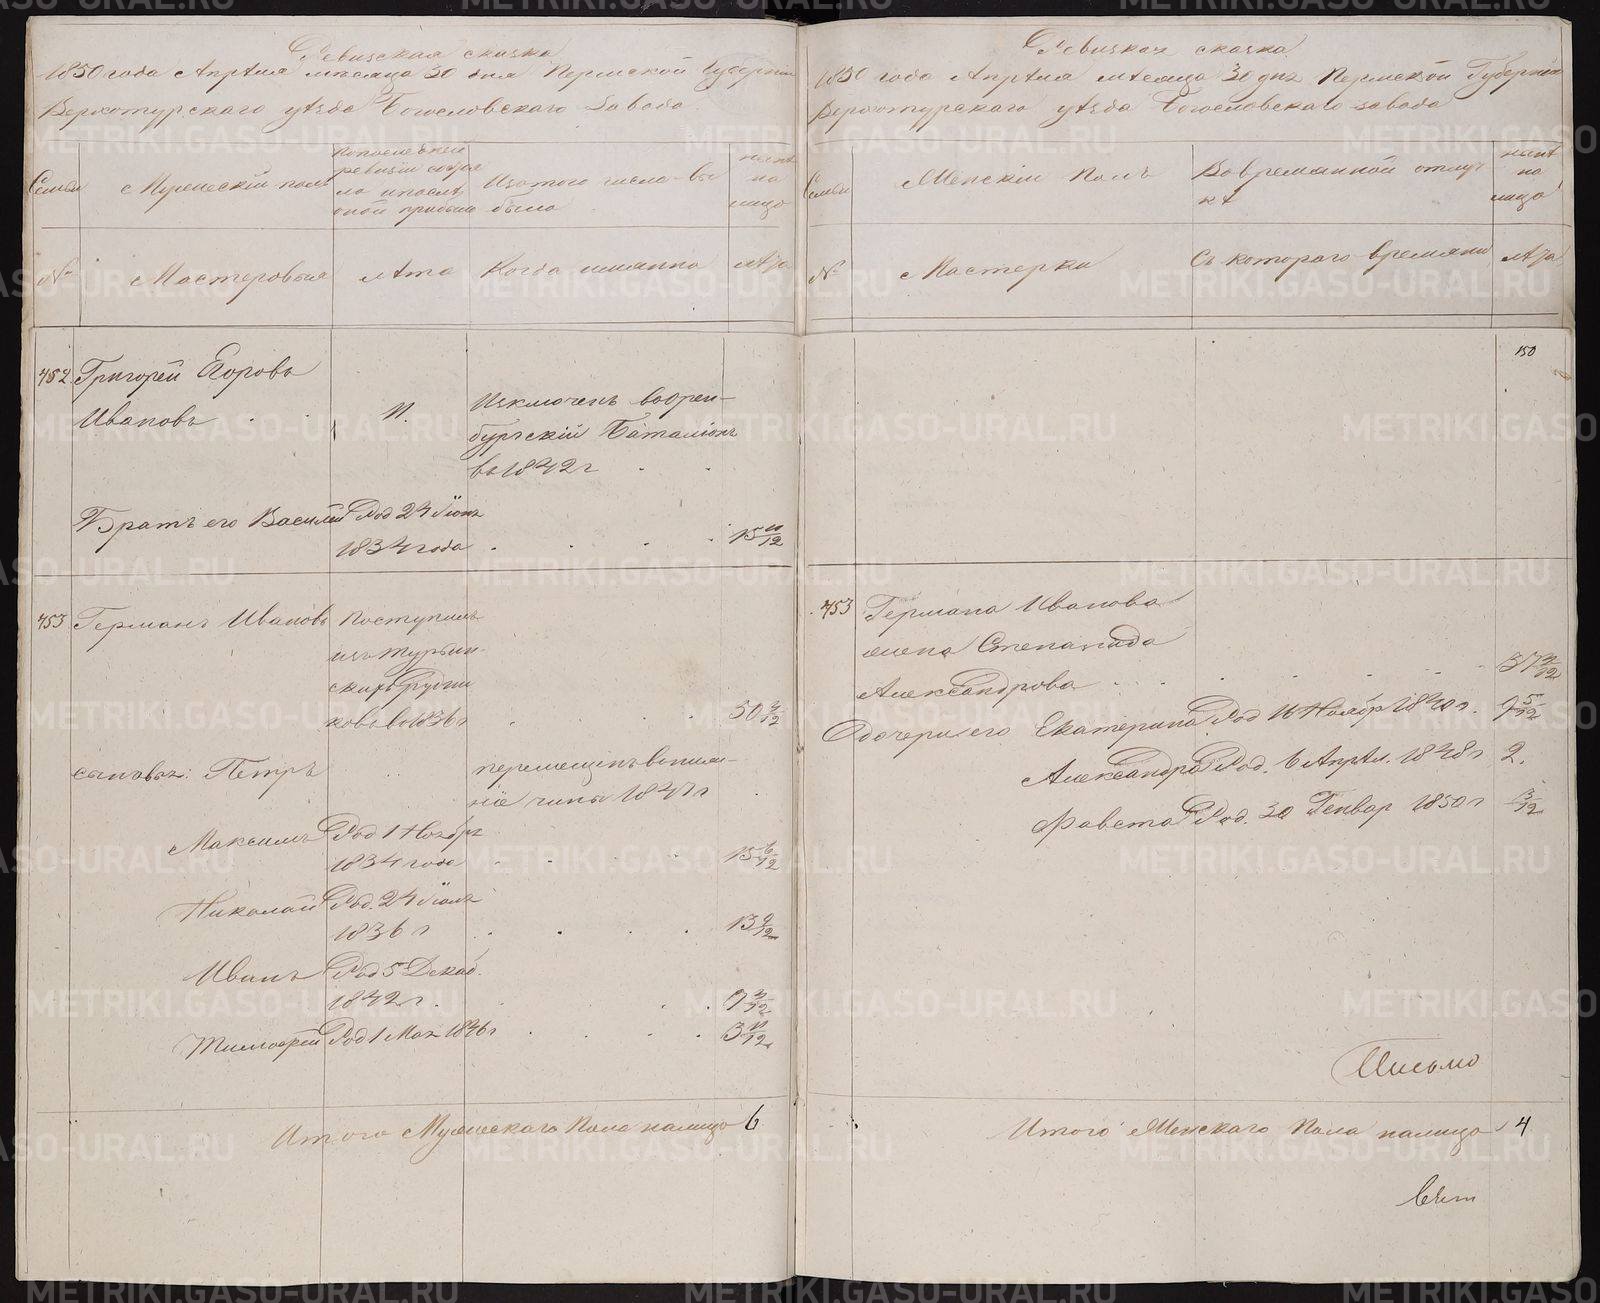 Ревизская сказка
1850 года Апрѣля мѣсяца 30 дня Пермской Губерніи
Верхотурскаго уѣзда Богословскаго Завода
Семьи
Мужескій полъ
По последней
ревизіи состоя
ло и послѣ
оной прибыло
Изъ того числа вы
было
нынѣ
на
лицо
№
Мастеровыя
Лѣта
Когда именно
Лѣта
452
Григорей Егоровъ
Ивановъ
11.
Изключенъ въ Орен-
бургскій Баталіонъ
въ 1842 г
Братъ его Василей
Род 24 Іюня
1834 года
15 10/12
453
Германъ Ивановъ
Поступилъ
изъ Турьин-
скихъ Рудни
ковъ въ 1836 г
50 4/12
сыновья: Петръ
перемещенъ в ниж-
ніе чины 1847 г
Максимъ
Род 1 Ноября
1834 года
15 6/12
Николай
Род. 24 Іюля
1836 г
13 9/12
Иванъ
Род 5 Декаб.
1842 г.
7 4/12
Тимофей
Род 1 Мая 1846 г
3 11/12
Итого Мужескаго Пола налицо 6
Ревизская сказка
1850 года Апрѣля мѣсяца 30 дня Пермской Губерніи
Верхотурскаго уѣзда Богословскаго завода
Семьи
Женскій Полъ
Во временной отлуч
кѣ
нынѣ
на
лицо
№
Мастерки
Съ котораго времяни
Лѣта
150
453
Германа Иванова
жена Степанида
Александрова
37 4/12
Дочери его Екатерина Род 16 Ноябр 1840 г. 9 5/12
Александра Род. 6 Апрѣл. 1848 г 2.
Фавста Род. 30 Генвар 1850 г 3/12
Письмо
Итого Женскаго Пола налицо 4
METRIKI.GASO-URAL.RU